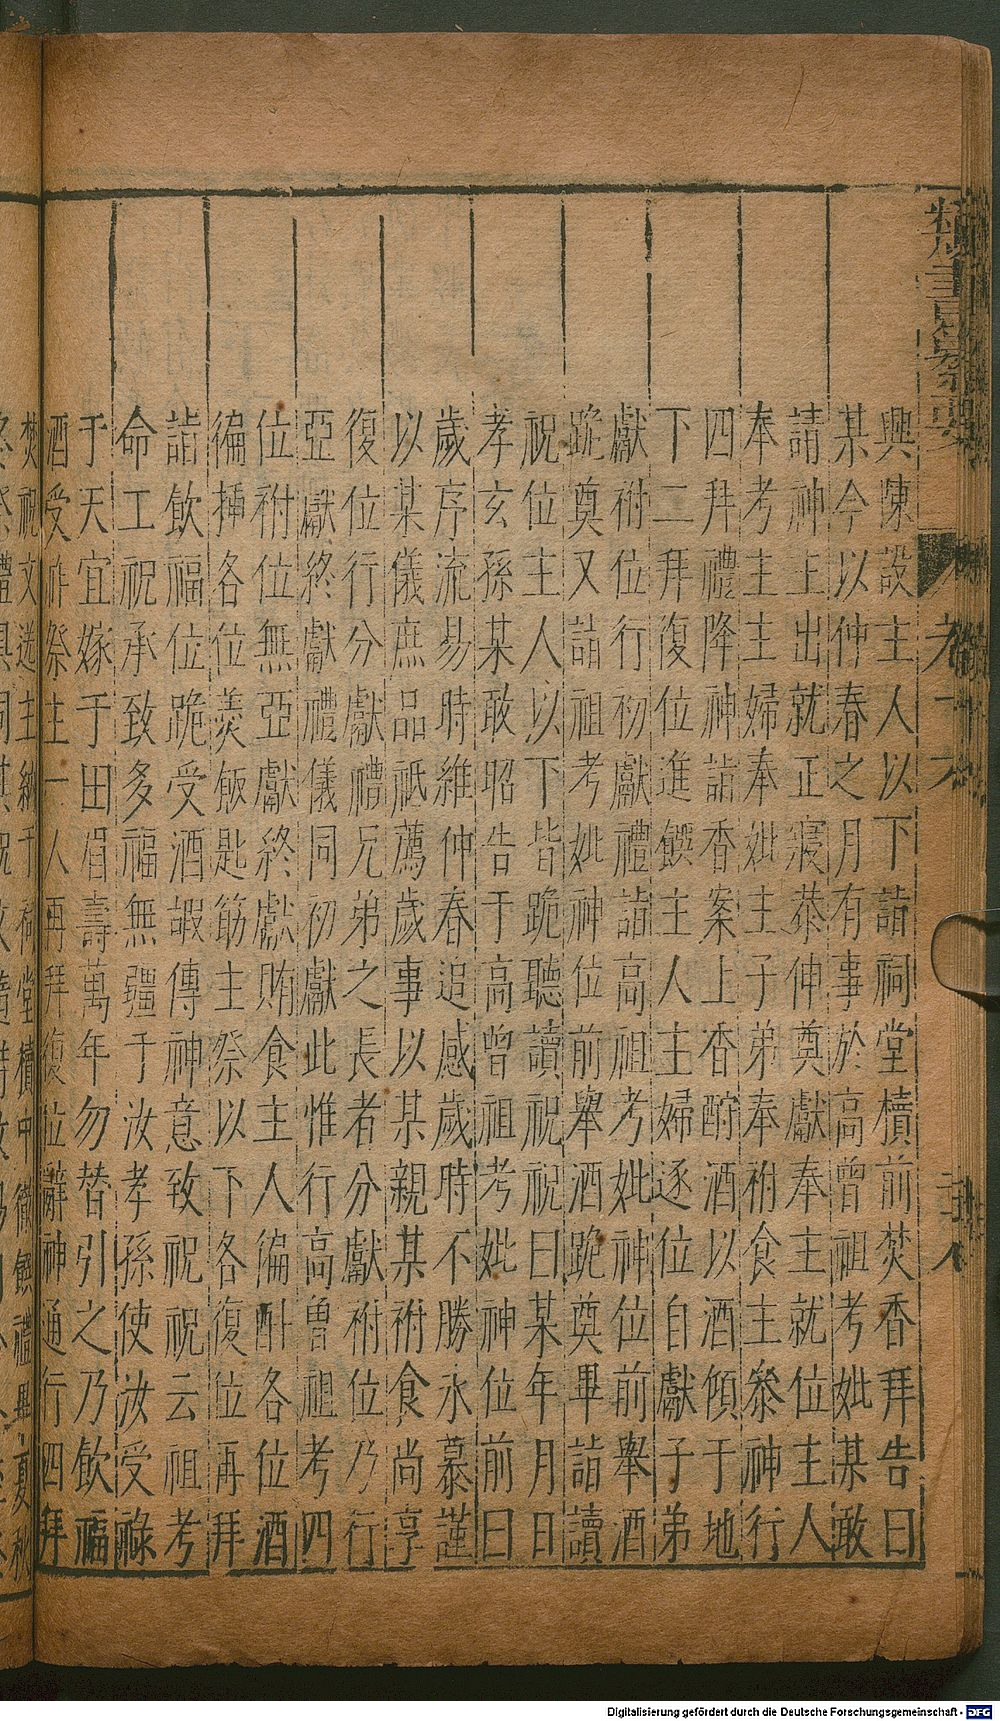 類書纂要 卷十六
興陳設主人以下詣祠堂櫝前焚香拜告曰
某今以仲春之月有事於高曾祖考妣某敢
請神主出就正寢恭伸奠獻奉主就位主人
奉考主主婦奉妣主子弟奉祔食主叅神行
四拜禮降神詣香案上香酹酒以酒傾于地
下二拜復位進饌主人主婦逐位自獻子弟
獻祔位行初獻禮詣高祖考妣神位前舉酒
跪奠又詣祖考妣神位前舉酒跪奠畢詣讀
祝位主人以下皆跪聽讀祝祝曰某年月日
孝玄孫某敢昭告于高曾祖考妣神位前曰
歲序流易時維仲春追感歲時不勝永慕謹
以某儀庶品祗薦歲事以某親某祔食尚享
復位行分獻禮兄弟之長者分獻祔位乃行
亞獻終獻禮儀同初獻此惟行高曾祖考四
位祔位無亞獻終獻侑食主人徧酙各位酒
徧揷各位羹飯匙筯主祭以下各復位再拜
詣飲福位跪受酒嘏傳神意致祝祝云祖考
命工祝承致多福無疆于汝孝孫使汝受祿
于天宜嫁于田眉壽萬年勿替引之乃飲福
酒受胙祭主一人再拜復位辭神通行四拜
焚祝文送主納于祠堂櫝中徹饌禮畢夏秋
Digitalisierung gefördert durch die Deutsche Forschungsgemeinschaft - DFG